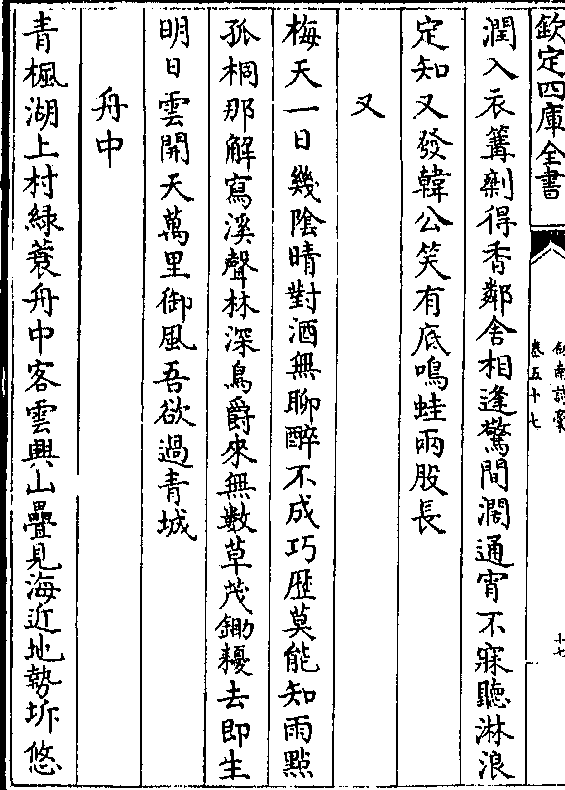 欽定四庫全書
劍南詩槀
卷五十七
十七
潤入衣篝剰得香鄰舍相逢驚間濶通宵不寐聽淋浪
定知又發韓公笑有底鳴蛙兩股長
又
梅天一日幾陰晴對酒無聊醉不成巧歴莫能知雨㸃
孤桐那解寫溪聲林深鳥爵來無數草茂鋤耰去即生
明日雲開天萬里御風吾欲過青城
舟中
青楓湖上村緑蓑舟中客雲興山疊見海近地勢坼悠